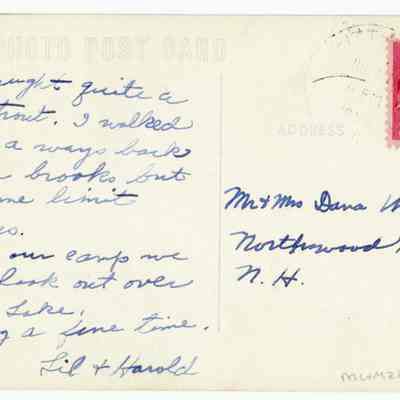 PHOTO POST CARD
quite a
trout. I walked
a ways back
brooks but
limit
our camp we
look out over
Lake.
a fine time.
Lil + Harold
ADDRESS
Mr + Mrs Dana
Northwood
N. H.